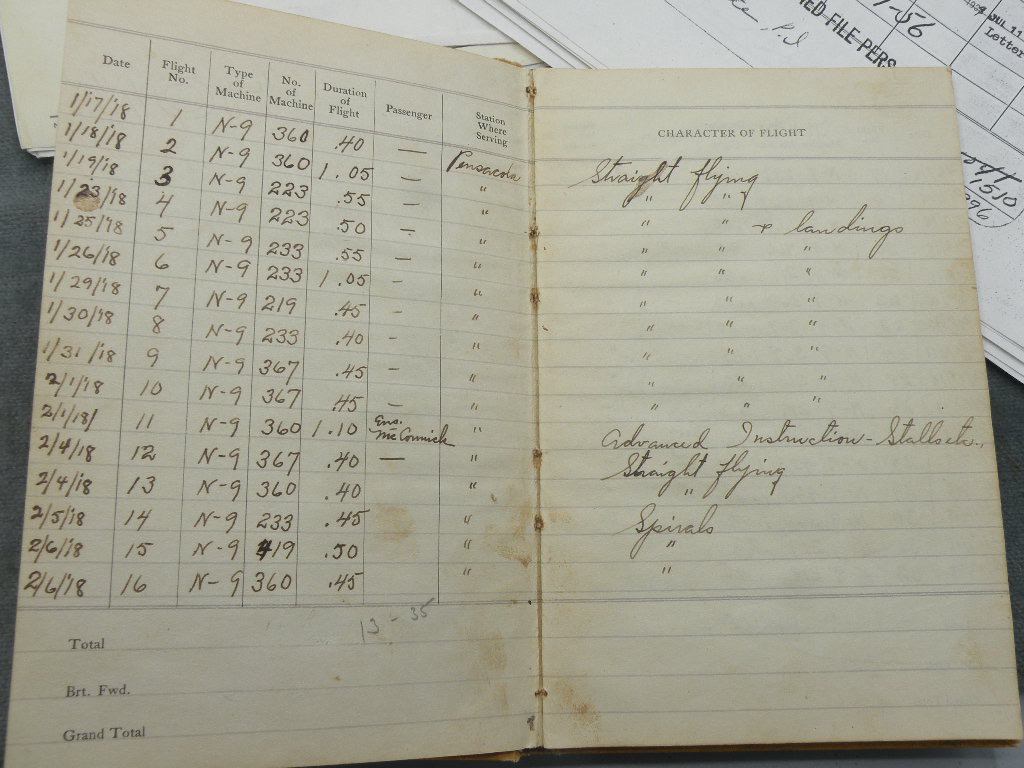 Date Flight No. Type of Machine No. of Machine Duration of Flight Passenger Station Where Serving CHARACTER OF FLIGHT
1/17/18 1 N-9 360 .40 — Pensacola Straight flying
1/18/18 2 N-9 360 1.05 — " " "
1/19/18 3 N-9 223 .55 — " " " & landings
1/23/18 4 N-9 223 .50 — " " " "
1/25/18 5 N-9 233 .55 — " " " "
1/26/18 6 N-9 233 1.05 - " " " "
1/29/18 7 N-9 219 .45 - " " " "
1/30/18 8 N-9 233 .40 - " " " "
1/31/18 9 N-9 367 .45 - " " " "
2/1/18 10 N-9 367 .45 — " " " "
2/1/18/ 11 N-9 360 1.10 Ens. McCormick " Advanced Instruction - Stalls etc.
2/4/18 12 N-9 367 .40 — " Straight flying
2/4/18 13 N-9 360 .40 " "
2/5/18 14 N-9 233 .45 " Spirals
2/6/18 15 N-9 419 .50 " "
2/6/18 16 N-9 360 .45 " "
13-35
Total
Brt. Fwd.
Grand Total
FILE PERS
-56
JUL 11
Letter
1510